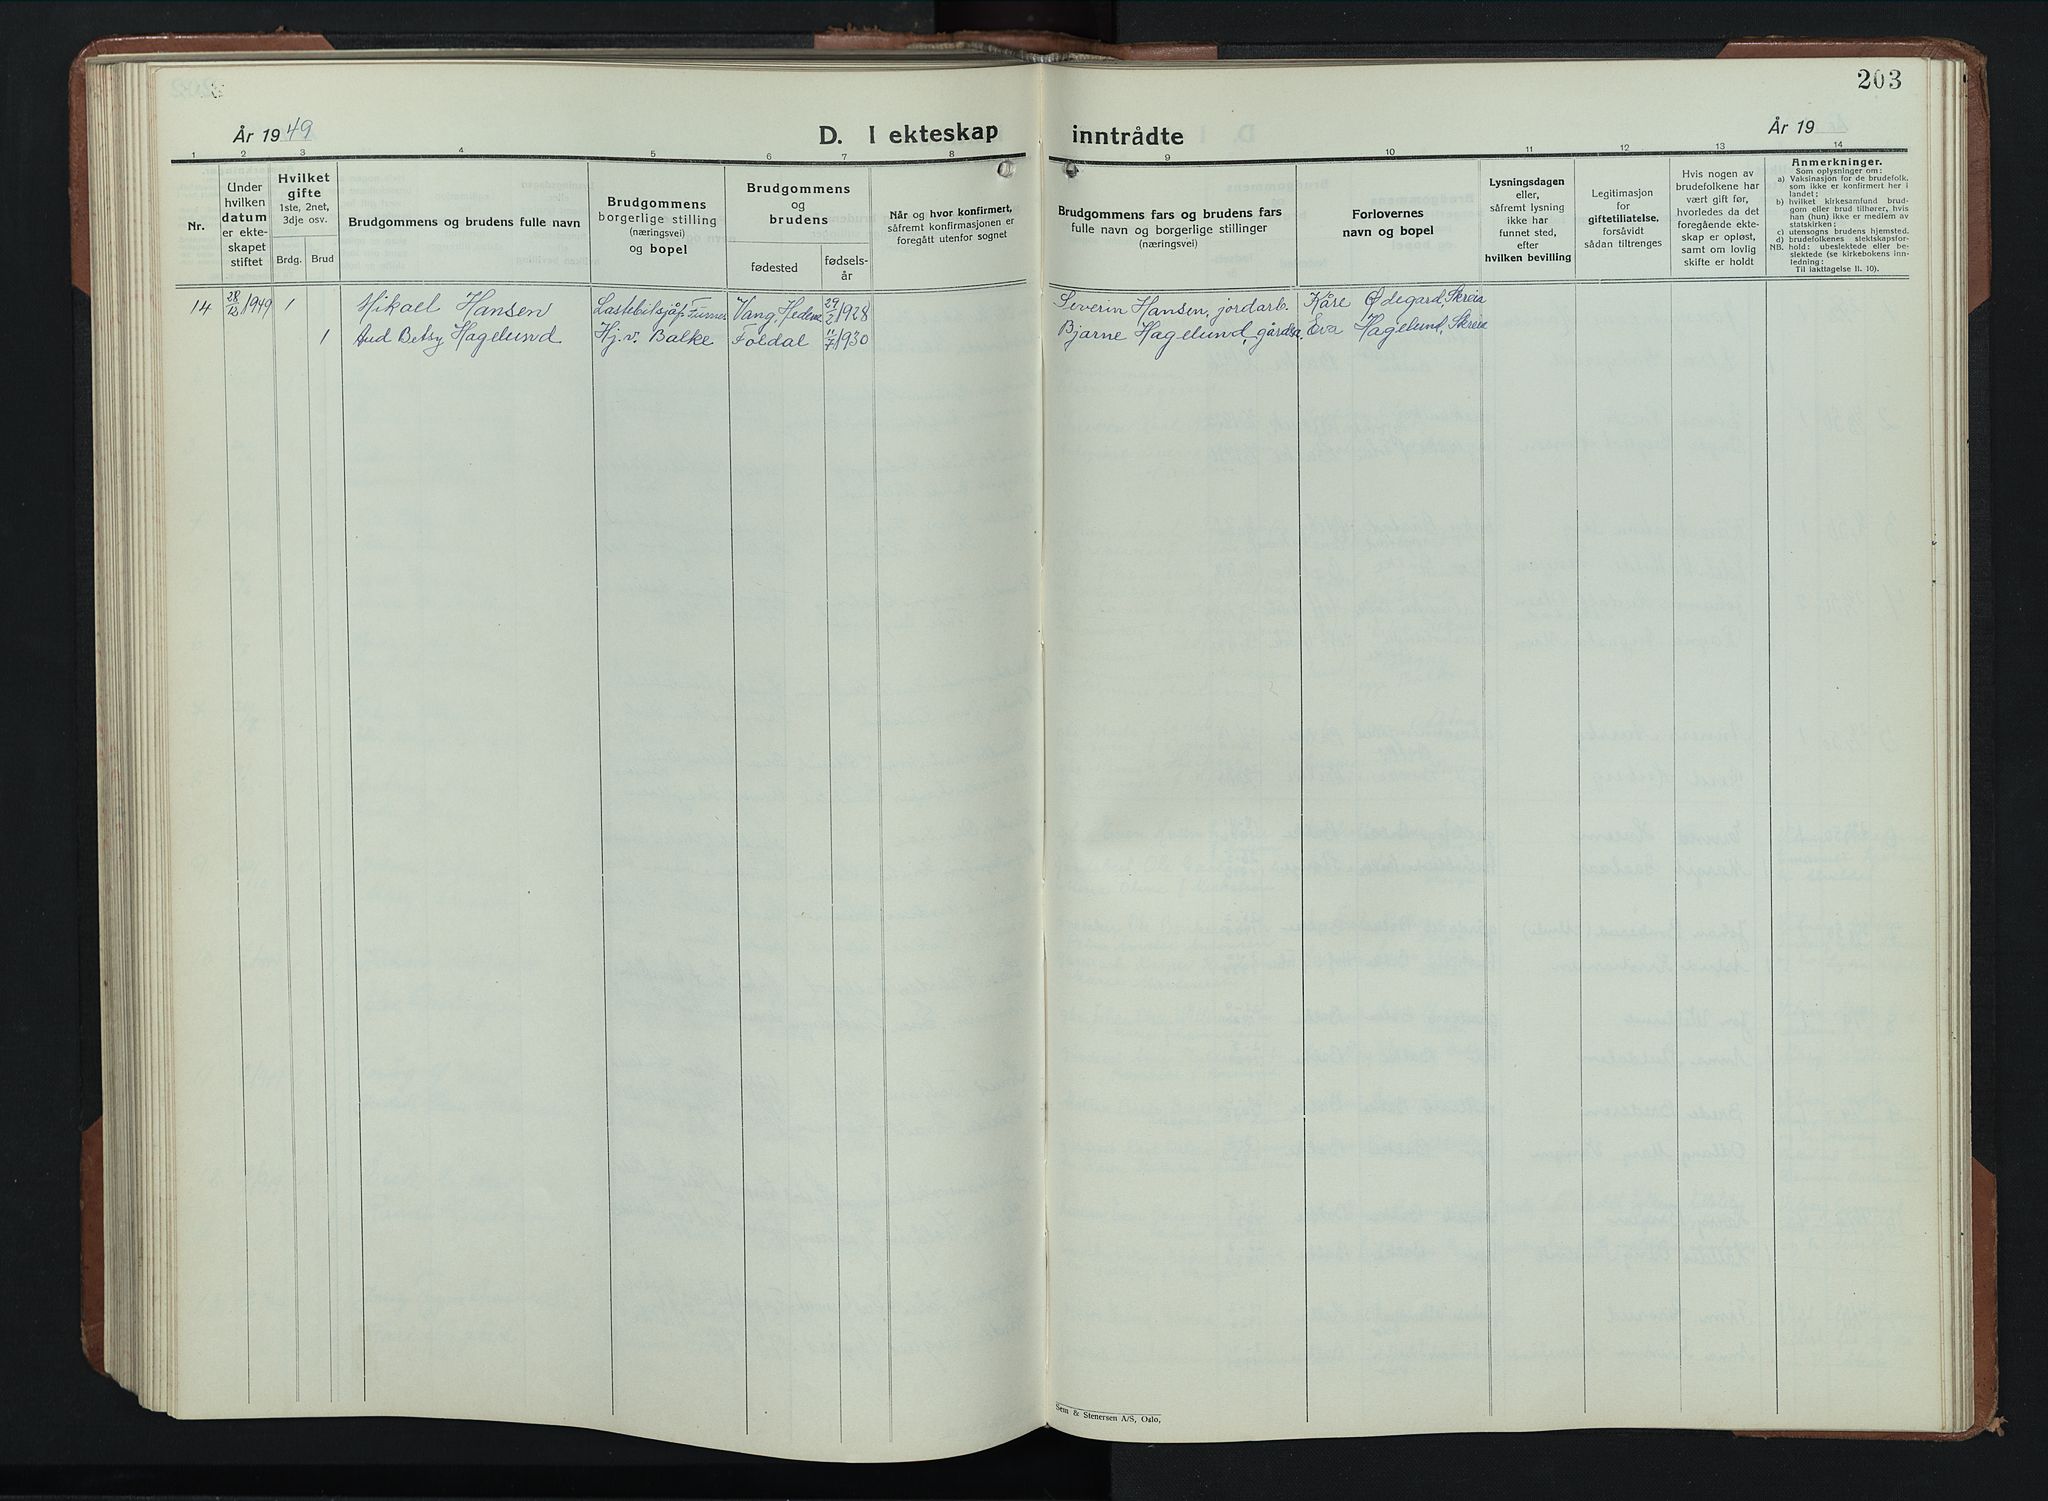 203
År 1949
D. I ekteskap inntrådte
År 19
1 2 3 4 5 6 7 8 9 10 11 12 13 14
Nr.
Under
hvilken
datum
er ekte-
skapet
stiftet
Hvilket
gifte
1ste, 2net,
3dje osv.
Brdg.
Brud
Brudgommens og brudens fulle navn
Brudgommens
borgerlige stilling
(næringsvei)
og bopel
Brudgommens
og
brudens
fødested
fødsels-
år
Når og hvor konfirmert,
såfremt konfirmasjonen er
foregått utenfor sognet
Brudgommens fars og brudens fars
fulle navn og borgerlige stillinger
(næringsvei)
Forlovernes
navn og bopel
Lysningsdagen
eller,
såfremt lysning
ikke har
funnet sted,
efter
hvilken bevilling
Legitimasjon
for
giftetillatelse,
forsåvidt
sådan tiltrenges
Hvis nogen av
brudefolkene har
vært gift før,
hvorledes da det
foregående ekte-
skap er opløst,
samt om lovlig
skifte er holdt
Anmerkninger.
Som oplysninger om:
a) Vaksinasjon for de brudefolk,
som ikke er konfirmert her i
landet;
b) hvilket kirkesamfund brud-
gom eller brud tilhører, hvis
han (hun) ikke er medlem av
statskirken;
c) utensogns brudens hjemsted.
d) brudefolkenes slektskapsfor-
NB. hold: ubeslektede eller be-
slektede (se kirkebokens inn-
ledning:
Til iakttagelse II. 10).
14 28/12 1949 1 Mikael Hansen Lastebilsjåf. Furnes Vang, Hedm. 29/2 1928 Severin Hansen, jordarb. Kåre Ødegard, Skreia
1 Aud Betsy Hagelund Hj.v. Balke Foldal 11/7 1930 Bjarne Hagelund, gårdsa. Eva Hagelund, Skreia
Sem & Stenersen A/S, Oslo,